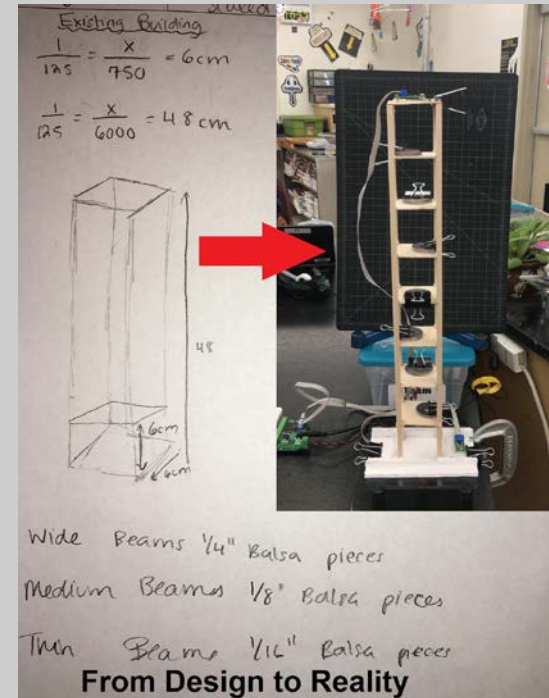 Existing Building
1/125 = x/750 = 6cm
1/125 = x/6000 = 48 cm
48
6cm
6cm
Wide Beams 1/4" Balsa pieces
Medium Beams 1/8" Balsa pieces
Thin Beams 1/16" Balsa pieces
From Design to Reality